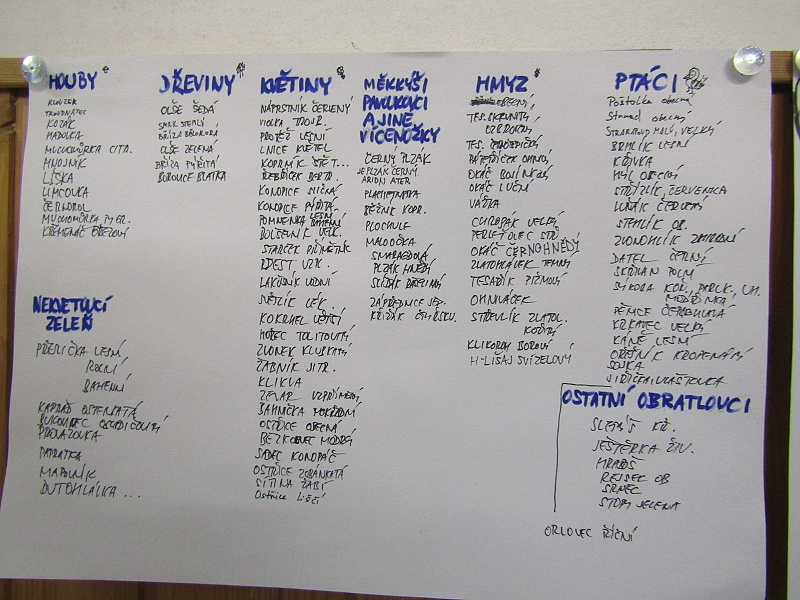 HOUBY
KLOUZEK
TROUDNATEC
KOZÁK
HADOVKA
MUCHOMŮRKA CITR.
HNOJNÍK
LIŠKA
LIMCOVKA
ČERNOHOL
MUCHOMŮRKA
KŘEMENÁČ BŘEZOVÝ
NEKVETOUCÍ
ZELEŇ
PŘESLIČKA LESNÍ
ROLNÍ
BAHENNÍ
KAPRAĎ OSTENATÁ
BUKOVINEC OSLADIČOVITÝ
PAPRATKA
DŘEVINY
OLŠE ŠEDÁ
SMRK ZTEPILÝ
BŘÍZA BĚLOKORÁ
OLŠE ZELENÁ
BŘÍZA PÝŘITÁ
BOROVICE BLATKA
KVĚTINY
NÁPRSTNÍK ČERVENÝ
VIOLKA
PROTĚŽ LESNÍ
LNICE KVĚTEL
KOPRNÍK ŠTĚT...
ŘEBŘÍČEK BERTR.
KONOPICE SLIČNÁ
KONOPICE PÝŘITÁ
POMNĚNKA LESNÍ
BAHENNÍ
BOLŠEVNÍK VELK.
STARČEK PŘÍMĚTNÍK
RDEST VZPL.
LAKUŠNÍK VODNÍ
SVĚTLÍK LÉK.
KOKRHEL VĚTŠÍ
HOŘEC TOLITOVITÝ
ZVONEK KLUBKATÝ
ŽABNÍK JITR.
KLIKVA
ZEVAR VZPŘÍMENÝ
BAHNIČKA MOKŘADNÍ
OSTŘICE OBECNÁ
BEZKOLENEC MODRÝ
SADEC KONOPÁČ
OSTŘICE ZOBÁNKATÁ
SÍTINA ŽABÍ
OSTŘICE LIŠČÍ
MĚKKÝŠI
PAVOUKOVCI
A JINÉ
VÍCENOŽKY
ČERNÝ PLZÁK
JE PLZÁK ČERNÝ
ARION ATER
PLACHETNATKA
BĚŽNÍK KOPR.
PLOCHULE
MALOOČKA
SMARAGDOVÁ
PLZÁK HNĚDÝ
SLÍĎÁK
ZÁPŘEDNICE JED.
KŘIŽÁK ČTYŘSKV.
HMYZ
OKÁČ BOJÍNKOVÝ
OKÁČ LUČNÍ
VÁŽKA
CHROPÁK VELKÝ
PERLEŤOVEC STŘ.
OKÁČ ČERNOHNĚDÝ
ZLATOHLÁVEK TMAVÝ
TESAŘÍK PIŽMOVÝ
OHNIVÁČEK
STŘEVLÍK ZLATOL.
KOŽITÝ
KLIKOROH BOROVÝ
H-LIŠAJ SVÍZELOVÝ
PTÁCI
Poštolka obecná
Strnad obecný
STRAKAPOUD MALÝ, VELKÝ
BRHLÍK LESNÍ
KŘIVKA
HÝL OBECNÝ
STŘÍZLÍK, ČERVENKA
LUŇÁK ČERVENÝ
STEHLÍK OB.
ZVONOHLÍK ZAHRADNÍ
DATEL ČERNÝ
SKŘIVAN POLNÍ
SÝKORA KOŇ., PARUK., UH.
MODŘINKA
PĚNICE ČERNOHLAVÁ
KRKAVEC VELKÝ
KÁNĚ LESNÍ
OŘEŠNÍK KROPENATÝ
SOJKA
JIŘIČKA, VLAŠTOVKA
OSTATNÍ OBRATLOVCI
SLEPÝŠ KŘ.
JEŠTĚRKA ŽIV.
HRABOŠ
REJSEK OB
SRNEC
STOPY JELENA
ORLOVEC ŘÍČNÍ